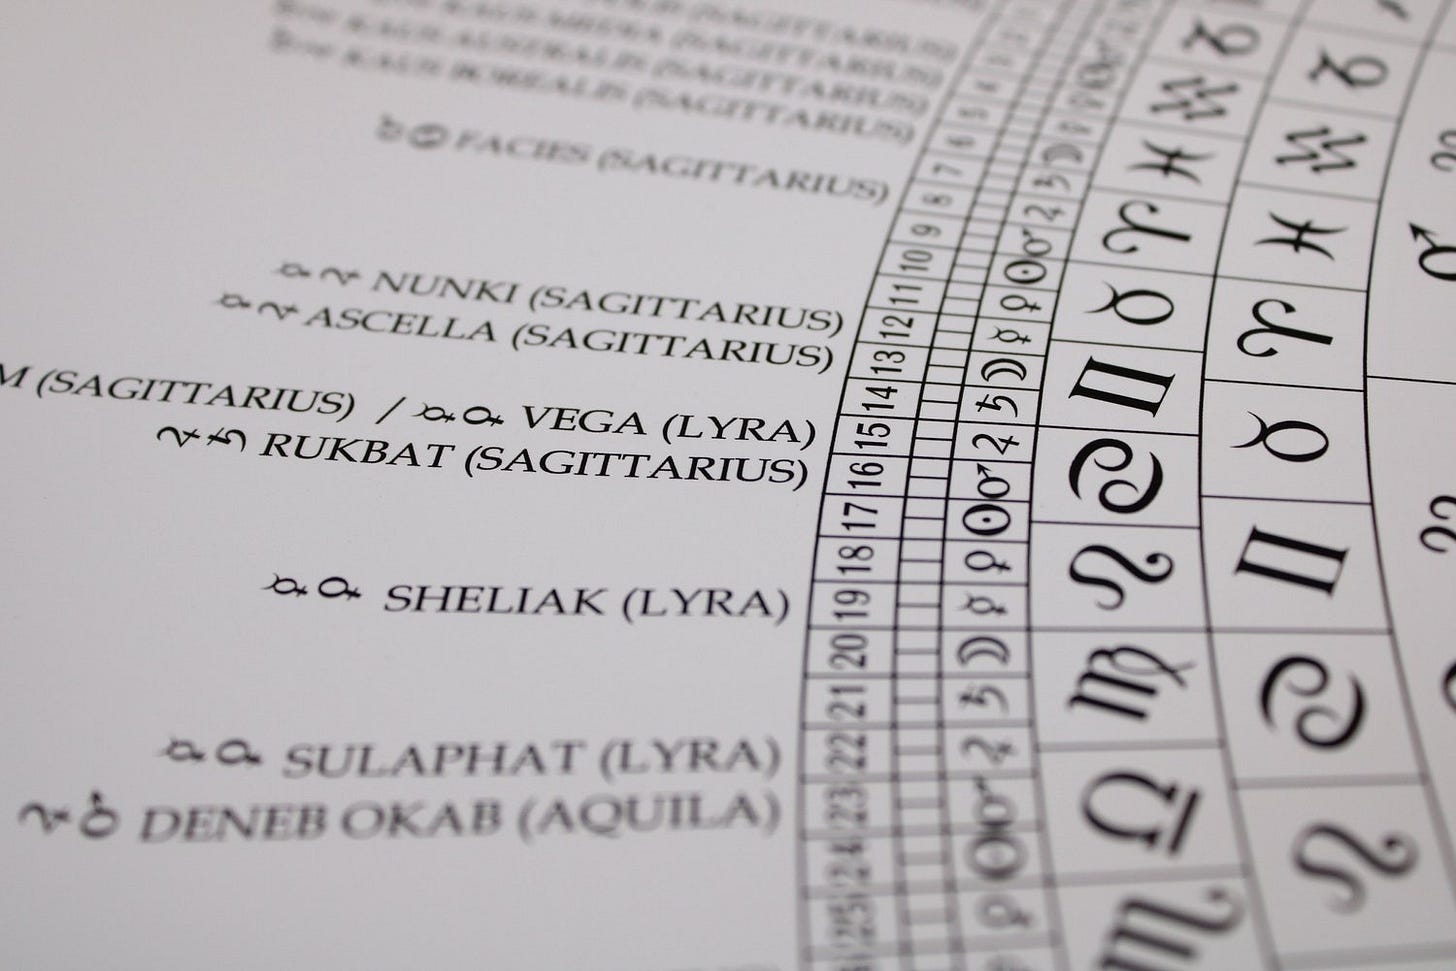 KAUS MEDIA (SAGITTARIUS)
KAUS AUSTRALIS (SAGITTARIUS)
KAUS BOREALIS (SAGITTARIUS)
FACIES (SAGITTARIUS)
☿♃ NUNKI (SAGITTARIUS)
☿♃ ASCELLA (SAGITTARIUS)
M (SAGITTARIUS) / ☿♀ VEGA (LYRA)
♃♄ RUKBAT (SAGITTARIUS)
☿♀ SHELIAK (LYRA)
☿♀ SULAPHAT (LYRA)
♃♂ DENEB OKAB (AQUILA)
5
6
7
8
9
10
11
12
13
14
15
16
17
18
19
20
21
22
23
24
25
♄
♃
♂
☉
♀
☿
☽
♄
♃
♂
☉
♀
☿
☽
♄
♃
♂
☉
♀
♑
♒
♓
♈
♉
♊
♋
♌
♍
♎
♏
♑
♒
♓
♈
♉
♊
♋
♌
♂